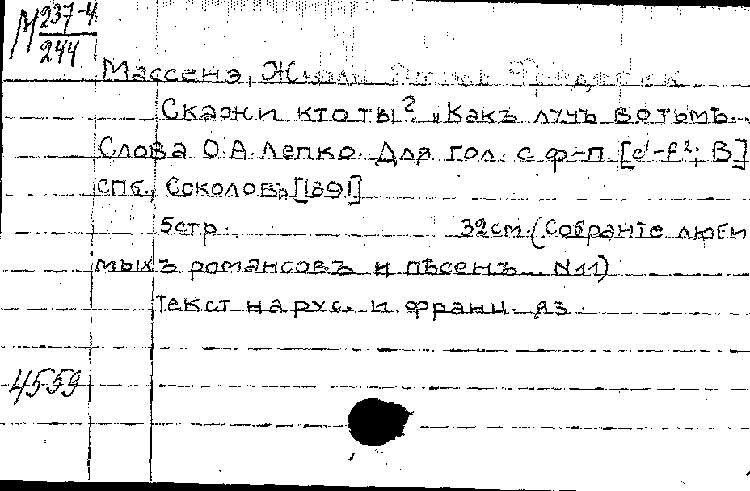 М 237-4
244
Массенэ, Жюль Эмиль Фредерик
Скажи кто ты? „Какъ лучъ во тьмѣ..
Слова О.А. Лепко. Для гол. с ф-п. [e¹-f²; B]
спб., Соколовъ, [1891]
5 стр. 32 см. (Собранiе люби
мыхъ романсовъ и пѣсенъ... N 11)
Текст на рус. и франц. яз.
4559